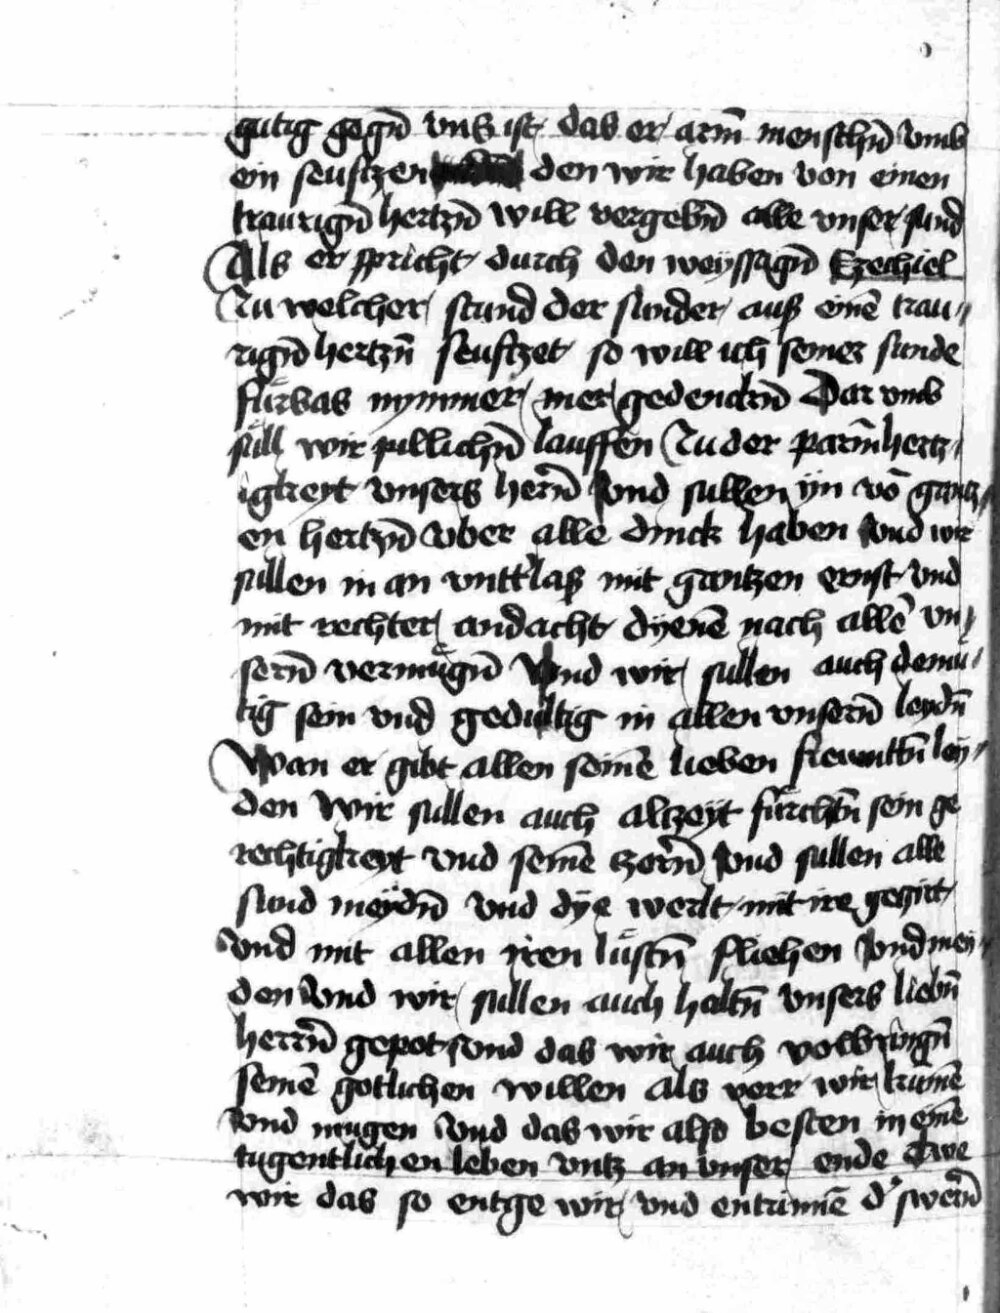 gutig gegn̄ vns ist das er arm̄ menschn̄ vmb
ein seuftzen den wir haben von einen
traurign̄ hertzn̄ will vergebn̄ alle vnser sund
Als er spricht durch den weyssagn̄ Ezechiel
Zu welcher stund der sunder auß einē trau
rign̄ hertzn̄ seuftzet so will ich seiner sunde
fürbas nymmer mer gedenckn̄ Dar vmb
süll wir pillichn̄ lauffen Zu der parm̄hertz
igkeyt vnsers hern̄ vnd sullen yn vō grantz
en hertzn̄ vber alle dinck haben vnd wir
sullen in an vntt'laß mit grantzen ernst vnd
mit rechter andacht dyenē nach allē vn
sern̄ vermügn̄ vnd wir sullen auch demü
tig sein vnd gedultig in allen vnsern̄ leydn̄
Wan er gibt allen seinē lieben frewnttn̄ ley
den Wir sullen auch alzeyt fürchtn̄ sein ge
rechtigkeyt vnd seinē zorn̄ vnd sullen alle
sund meydn̄ vnd dye werlt mit ire gegirt
vnd mit allen iren lüstn̄ fliehen vnd mey
den vnd wir sullen auch haltn̄ vnsers liebn̄
herrn̄ gepot vnd das wir auch volbringn̄
seinē gotlichen willen als verr wir kunnē
vnd mugen vnd das wir also besten in einē
tugentlichen leben vntz an vnser ende Twe
wir das so entge wir vnd entrinnē d' swern̄